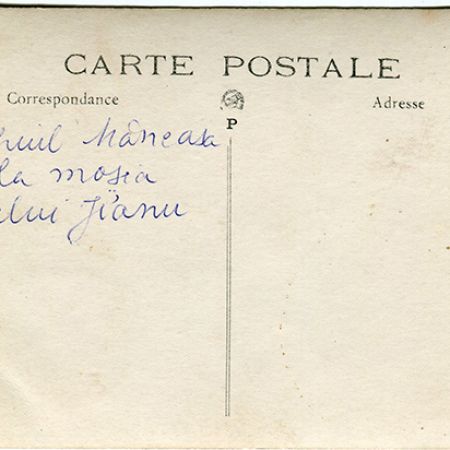 CARTE POSTALE
Correspondance
Adresse
P
huil Mâneasa
la moșia
lui Jianu